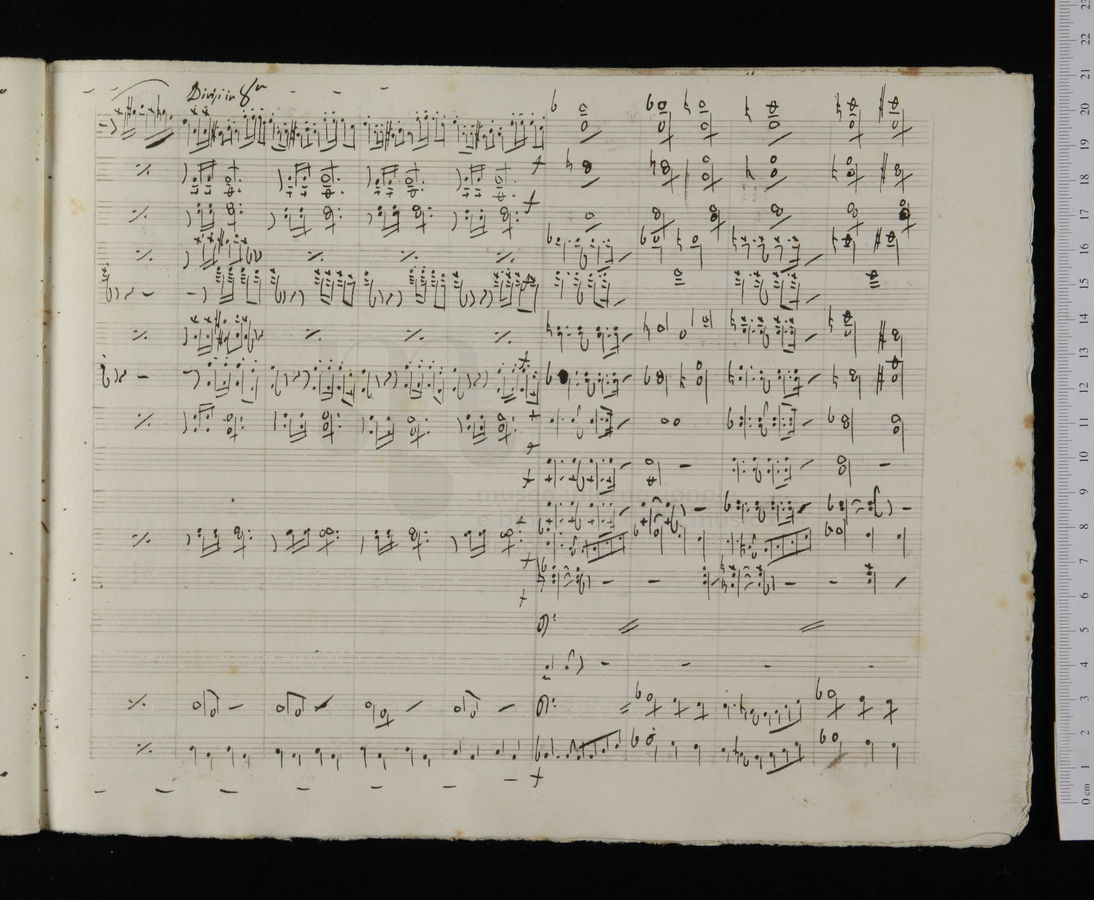 Divisi in 8va
23
22
21
20
19
18
17
16
15
14
13
12
11
10
9
8
7
6
5
4
3
2
1
0 cm